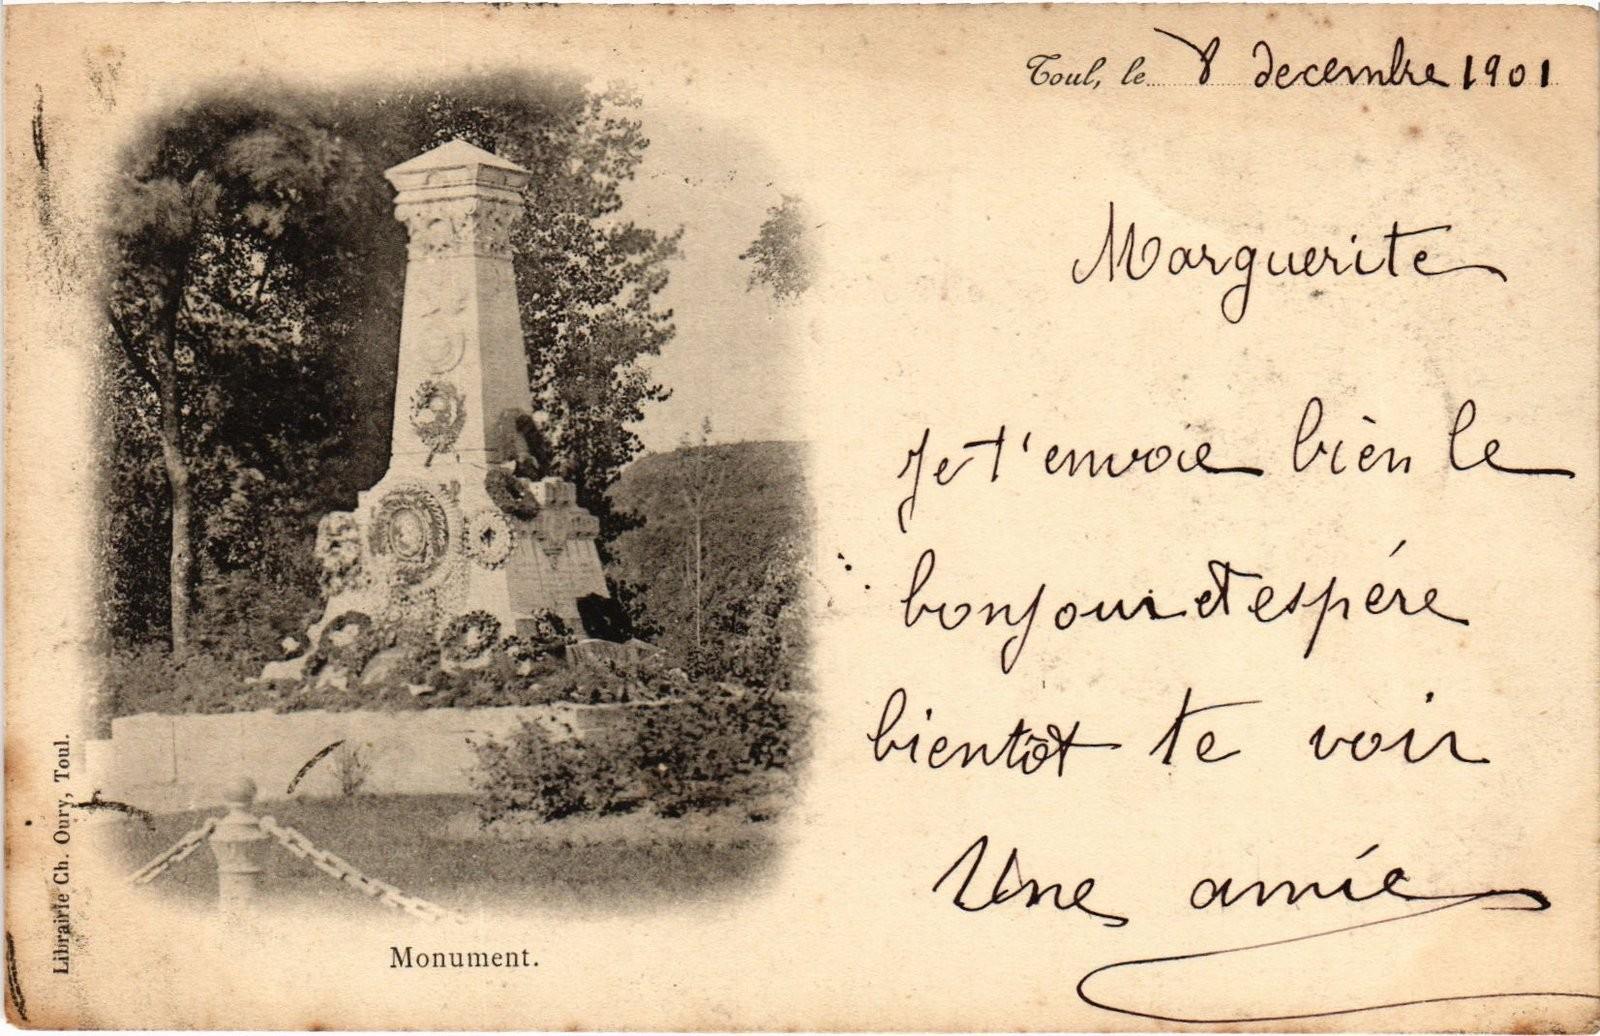 Toul, le 8 decembre 1901
Marguerite
Je t'envoie bien le
bonjour et espére
bientôt te voir
Une amie
Monument.
Librairie Ch. Oury, Toul.